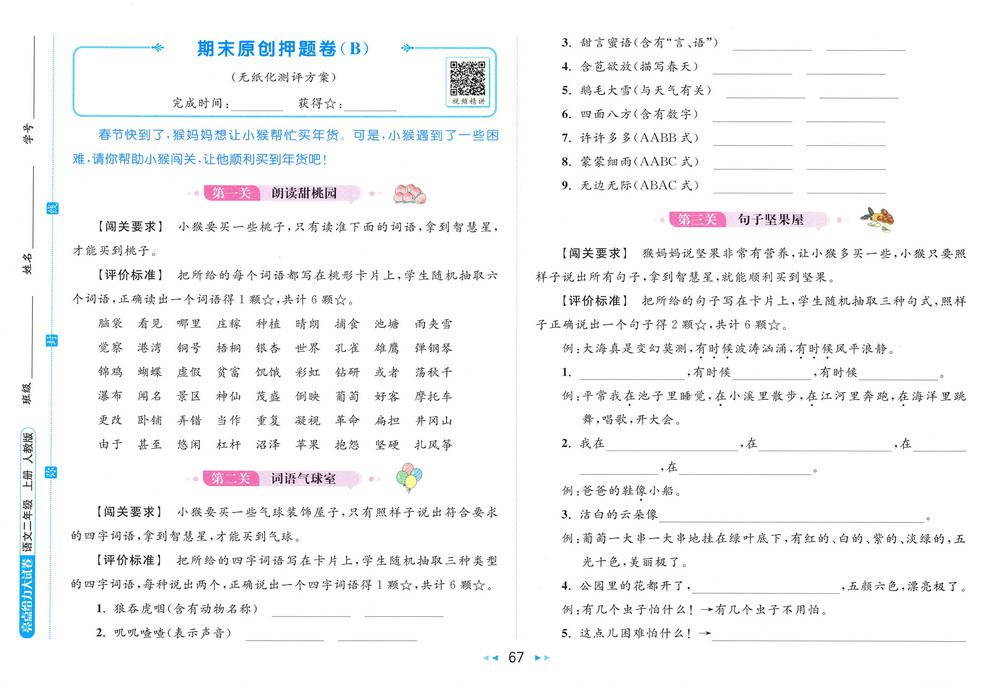 期末原创押题卷(B)
(无纸化测评方案)
完成时间:________ 获得☆:________
视频精讲
春节快到了,猴妈妈想让小猴帮忙买年货。可是,小猴遇到了一些困
难,请你帮助小猴闯关,让他顺利买到年货吧!
第一关 朗读甜桃园
【闯关要求】 小猴要买一些桃子,只有读准下面的词语,拿到智慧星,
才能买到桃子。
【评价标准】 把所给的每个词语都写在桃形卡片上,学生随机抽取六
个词语,正确读出一个词语得1颗☆,共计6颗☆。
脑袋 看见 哪里 庄稼 种植 晴朗 捕食 池塘 雨夹雪
觉察 港湾 铜号 梧桐 银杏 世界 孔雀 雄鹰 弹钢琴
锦鸡 蝴蝶 虚假 贫富 饥饿 彩虹 钻研 或者 荡秋千
瀑布 闻名 景区 神仙 茂盛 倒映 葡萄 好客 摩托车
更改 卧铺 弄错 当作 重复 凝视 革命 扁担 井冈山
由于 甚至 悠闲 杠杆 沼泽 苹果 抱怨 坚硬 扎风筝
第二关 词语气球室
【闯关要求】 小猴要买一些气球装饰屋子,只有照样子说出符合要求
的四字词语,拿到智慧星,才能买到气球。
【评价标准】 把所给的四字词语写在卡片上,学生随机抽取三种类型
的四字词语,每种说出两个,正确说出一个四字词语得1颗☆,共计6颗☆。
1. 狼吞虎咽(含有动物名称) ________ ________
2. 叽叽喳喳(表示声音) ________ ________
3. 甜言蜜语(含有“言、语”) ________ ________
4. 含苞欲放(描写春天) ________ ________
5. 鹅毛大雪(与天气有关) ________ ________
6. 四面八方(含有数字) ________ ________
7. 许许多多(AABB式) ________ ________
8. 蒙蒙细雨(AABC式) ________ ________
9. 无边无际(ABAC式) ________ ________
第三关 句子坚果屋
【闯关要求】 猴妈妈说坚果非常有营养,让小猴多买一些,小猴只要照
样子说出所有句子,拿到智慧星,就能顺利买到坚果。
【评价标准】 把所给的句子写在卡片上,学生随机抽取三种句式,照样
子正确说出一个句子得2颗☆,共计6颗☆。
例:大海真是变幻莫测,有时候波涛汹涌,有时候风平浪静。
1. ________,有时候________,有时候________。
例:平常我在池子里睡觉,在小溪里散步,在江河里奔跑,在海洋里跳
舞,唱歌,开大会。
2. 我在________,在________,在________
________,在________。
例:爸爸的鞋像小船。
3. 洁白的云朵像________。
例:葡萄一大串一大串地挂在绿叶底下,有红的、白的、紫的、淡绿的,五
光十色,美丽极了。
4. 公园里的花都开了,________,五颜六色,漂亮极了。
例:有几个虫子怕什么!→有几个虫子不用怕。
5. 这点儿困难怕什么!→________
67
学号________
姓名________
班级________
线
封
弥
亮点给力大试卷 语文二年级 上册 人教版